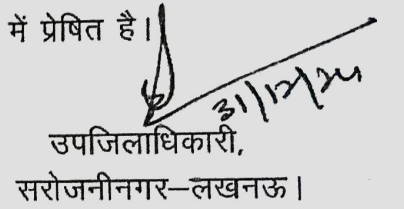 में प्रेषित है।
31/12/24
उपजिलाधिकारी,
सरोजनीनगर–लखनऊ।